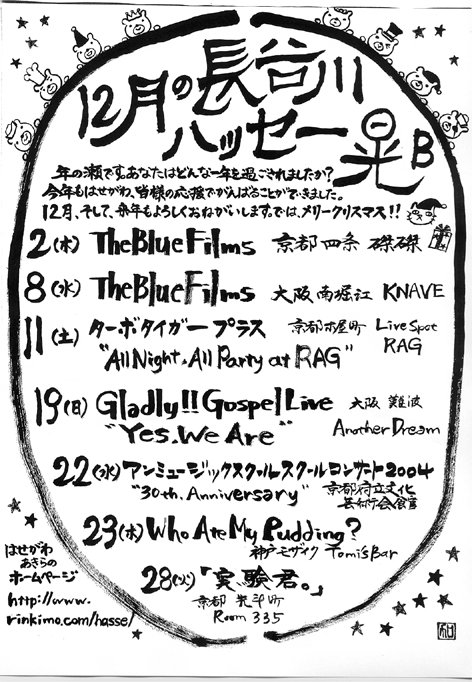 12月の長谷川
ハッセー晃B
年の瀬です。あなたはどんな一年を過ごされましたか?
今年もはせがわ、皆様の応援でがんばることができました。
12月、そして、来年もよろしくおねがいします。では、メリークリスマス!!
2(木) The Blue Films 京都四条 磔磔
8(水) The Blue Films 大阪南堀江 KNAVE
11(土) ターボタイガープラス 京都木屋町 Live Spot
"All Night, All Party at RAG" RAG
19(日) Gladly!! Gospel Live 大阪 難波
"Yes. We Are" Another Dream
22(水) アンミュージックスクールスクールコンサート2004
"30th. Anniversary" 京都府立文化
芸術会館
23(木) Who Ate My Pudding?
神戸モザイク Tomi's Bar
28(火)「実験君。」
京都
Room 335
はせがわ
あきらの
ホームページ
http://www.
rinkimo.com/hasse/